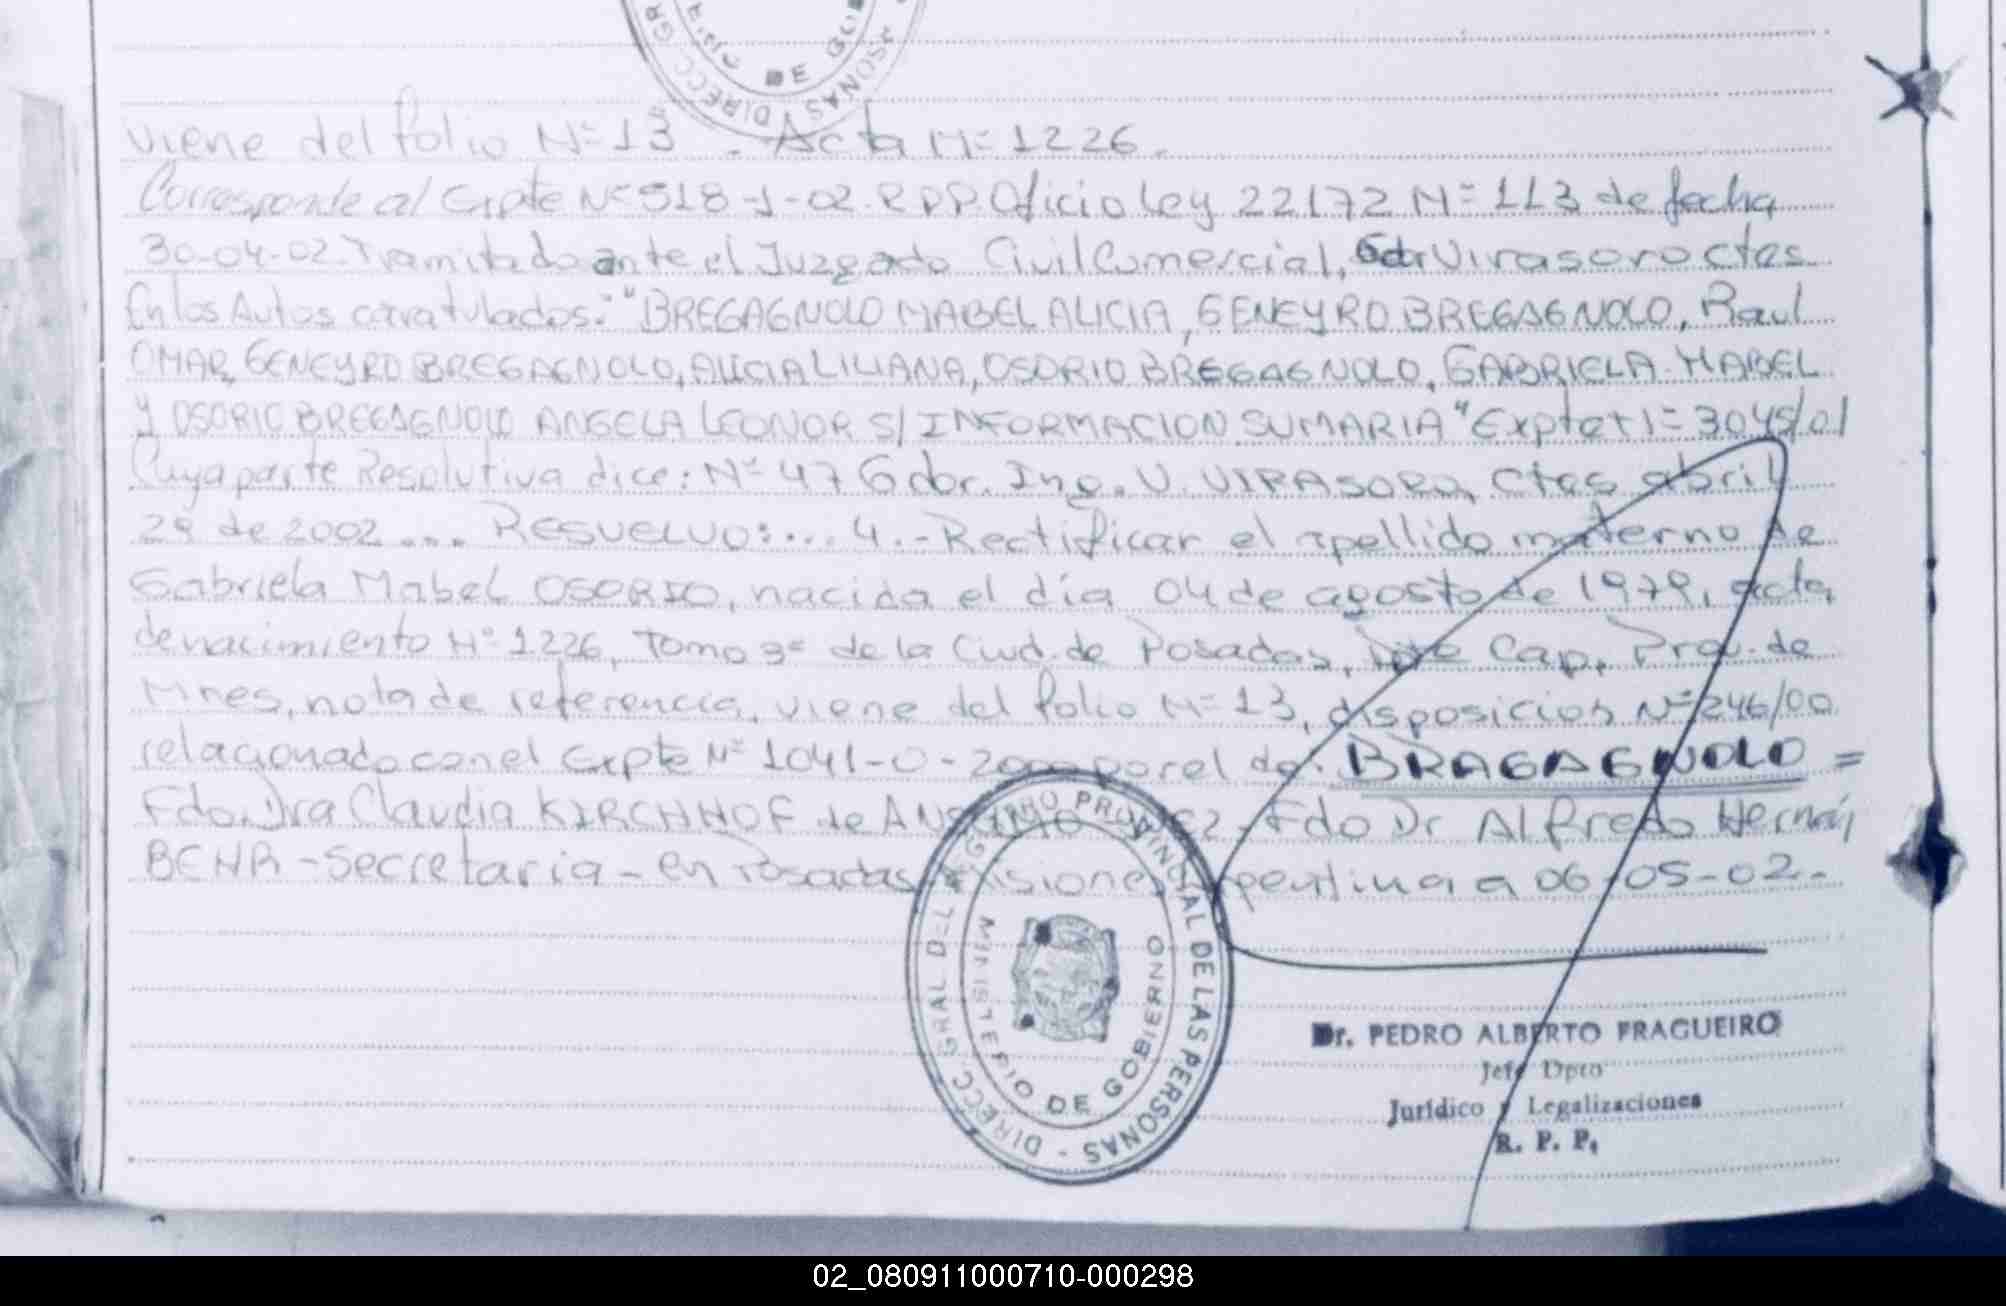 DIRECC. GR
DE GOB
SONAS
Viene del folio Nº 13. Acta Nº 1226.
Corresponde al Expte Nº 518-1-02. RPP. Oficio Ley 22172 Nº 113 de fecha
30-04-02. Tramitado ante el Juzgado Civil Comercial, Gdr Virasoro Ctes
En los Autos caratulados: "BREGAGNOLO MABEL ALICIA, GENEYRO BREGAGNOLO, Raul
OMAR, GENEYRO BREGAGNOLO, ALICIA LILIANA, OSORIO BREGAGNOLO, GABRIELA MABEL
Y OSORIO BREGAGNOLO ANGELA LEONOR S/ INFORMACION SUMARIA" Expte Nº 3045/01
Cuya parte Resolutiva dice: Nº 47 Gdor. Ing. V. VIRASORO, Ctes abril
29 de 2002 ... RESUELVO: ... 4.- Rectificar el apellido materno de
Gabriela Mabel OSORIO, nacida el día 04 de agosto de 1979, acta
de nacimiento Nº 1226, Tomo 3º de la Ciud. de Posadas, Dpto Cap, Prov. de
Mnes, nota de referencia, viene del folio Nº 13, disposicion Nº 246/00
relacionado con el Expte Nº 1041-O-2000 por el de: BRAGAGNOLO =
Fdo. Dra Claudia KIRCHHOF de - Fdo Dr Alfredo Hernán
BEHR - Secretaria - en Posadas Misiones Argentina a 06-05-02.-
DIRECC. GRAL DEL REGISTRO PROVINCIAL DE LAS PERSONAS -
MINISTERIO DE GOBIERNO
Dr. PEDRO ALBERTO FRAGUEIRO
Jefe Dpto
Jurídico y Legalizaciones
R. P. P.
02_080911000710-000298